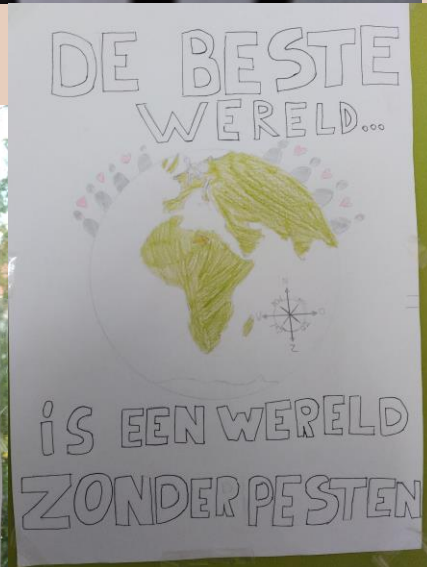 DE BESTE
WERELD...
N
Z
iS EEN WERELD
ZONDER PESTEN